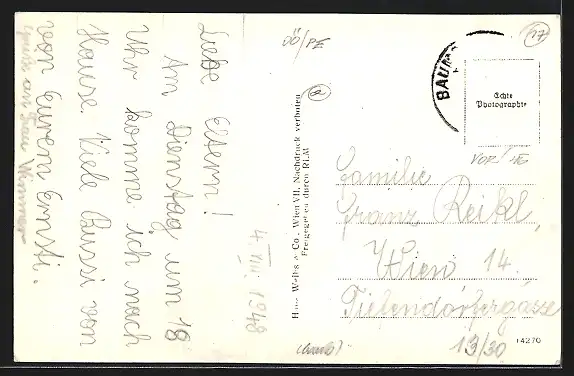 Liebe Eltern!
Am Dienstag um 18
Uhr komme ich nach
Hause. Viele Bussi von
von Eurem Ernsti.
4. VIII. 1948
ÖÖ/PE
Hans Weiss & Co., Wien VII, Nachdruck verboten
Freigegeben durch RLM
27
BAUM
Echte
Photographie
VOR!
Familie
Franz Reikl,
Wien 14.
Tiefendörfergasse
13/30
14270